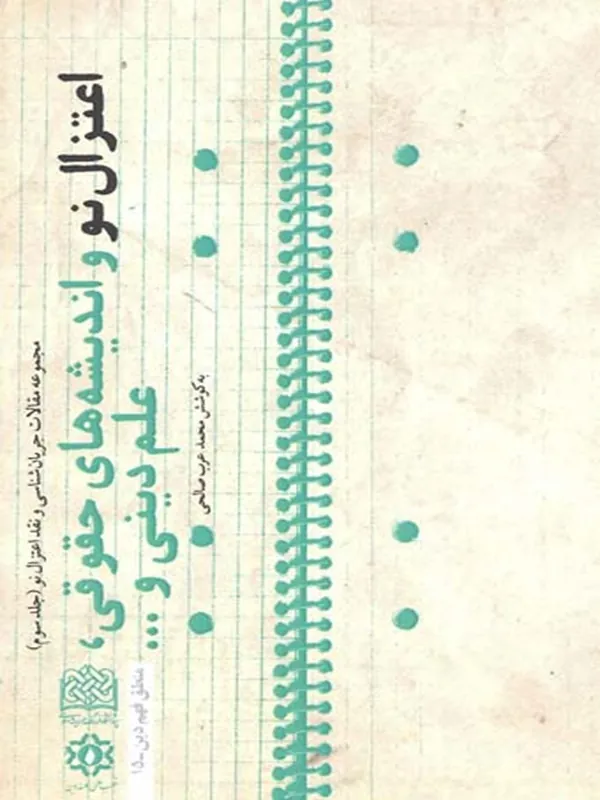 مجموعه مقالات جریان‌شناسی و نقد اعتزال نو (جلد سوم)
اعتزال نو و اندیشه‌های حقوقی،
علم دینی و ...
به کوشش محمد عرب صالحی
منطق فهم دین ـ ۱۵